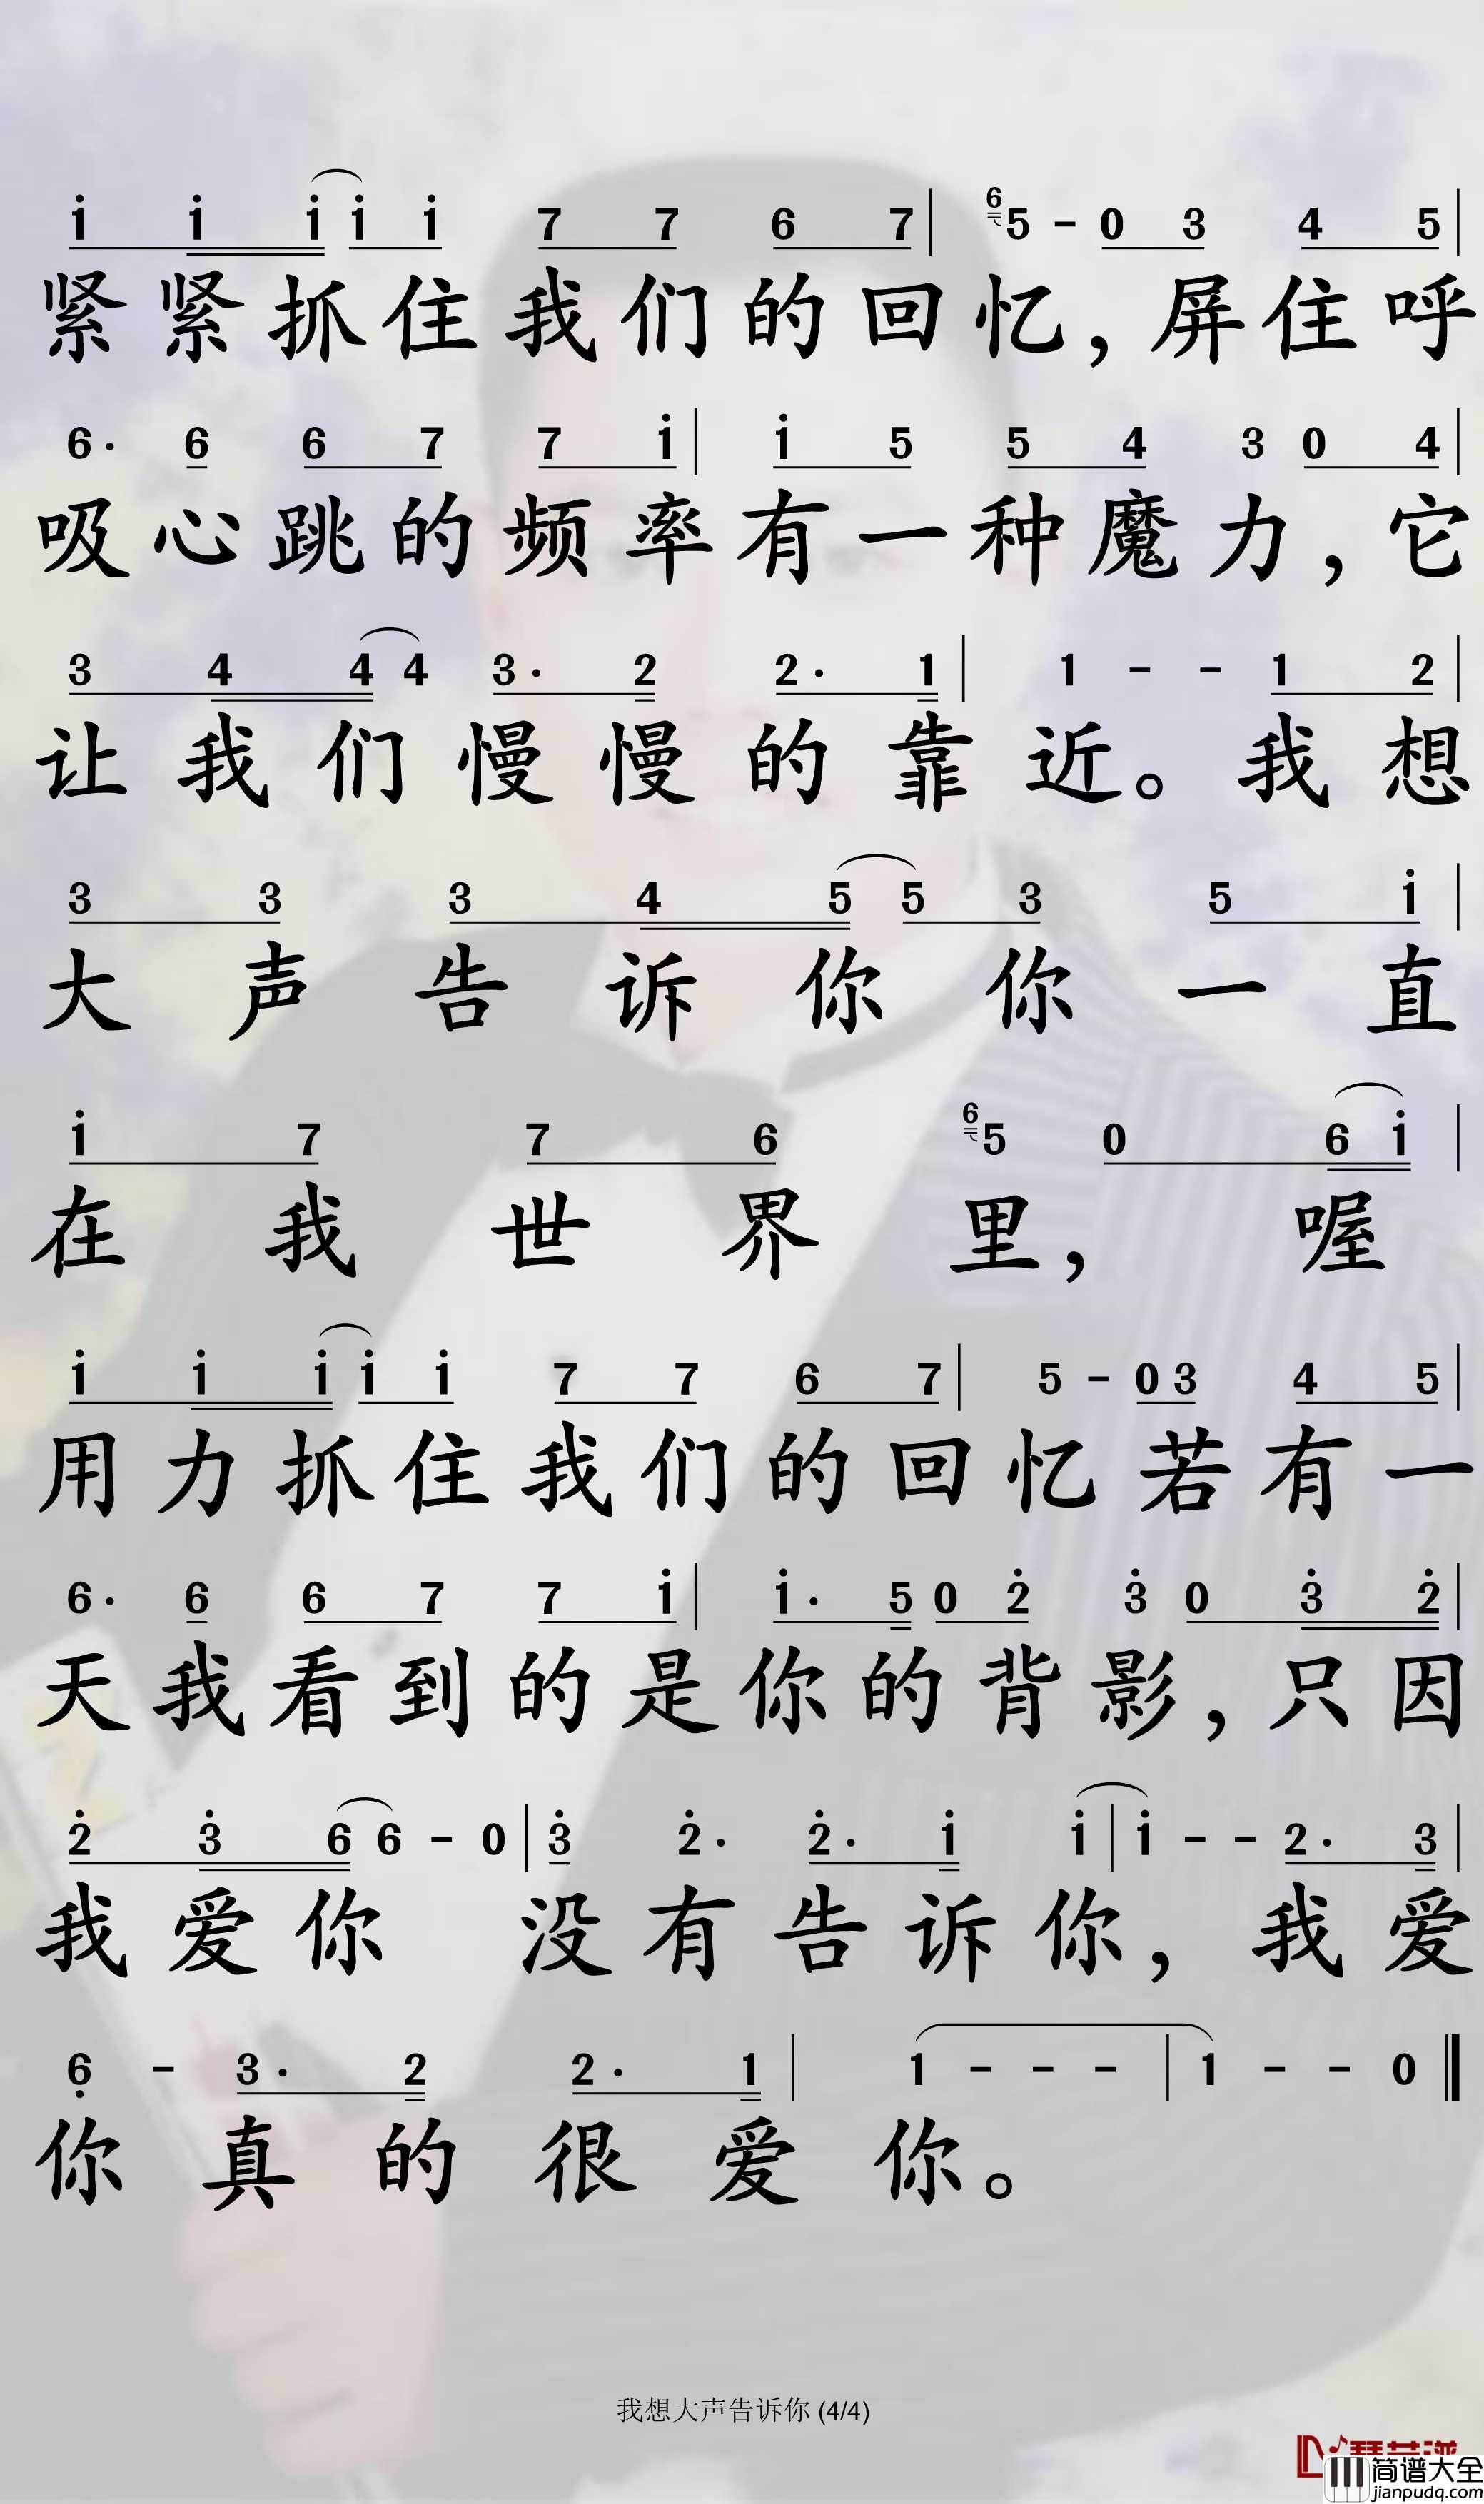 i i i i i 7 7 6 7 | 6 5 - 0 3 4 5 |
紧紧抓住我们的回忆，屏住呼
6· 6 6 7 7 i | i 5 5 4 3 0 4 |
吸心跳的频率有一种魔力，它
3 4 4 4 3· 2 2· 1 | 1 - - 1 2 |
让我们慢慢的靠近。我想
3 3 3 4 5 5 3 5 i |
大声告诉你你一直
i 7 7 6 6 5 0 6 i |
在我世界里，喔
i i i i i 7 7 6 7 | 5 - 0 3 4 5 |
用力抓住我们的回忆若有一
6· 6 6 7 7 i | i· 5 0 2̇ 3̇ 0 3̇ 2̇ |
天我看到的是你的背影，只因
2̇ 3̇ 6 6 - 0 | 3̇ 2̇· 2̇· i i | i - - 2̇· 3̇ |
我爱你 没有告诉你，我爱
6̣ - 3· 2 2· 1 | 1 - - - | 1 - - 0 ‖
你真的很爱你。
我想大声告诉你 (4/4)
简谱大全
jianpudq.com